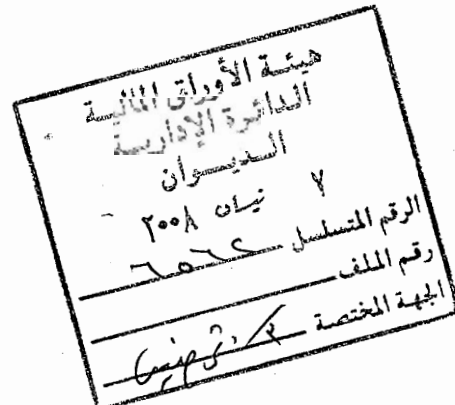 هيئة الأوراق المالية
الدائرة الإدارية
الديوان
٧ نيسان ٢٠٠٨
الرقم المتسلسل ٦٥٦٢
رقم الملف
الجهة المختصة